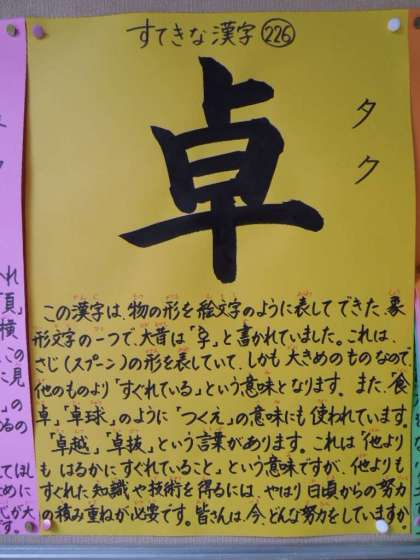 すてきな漢字 226
卓
タク
この漢字は、物の形を絵文字のように表してできた、象
形文字の一つで、大昔は「」と書かれていました。これは、
さじ(スプーン)の形を表していて、しかも大きめのものなので
他のものより「すぐれている」という意味となります。また、食
卓」「卓球」のように「つくえ」の意味にも使われています。
「卓越」「卓抜」という言葉があります。これは「他より
もはるかにすぐれていること」という意味ですが、他よりも
すぐれた知識や技術を得るには、やはり日頃からの努力
の積み重ねが必要です。皆さんは、今、どんな努力をしていますか